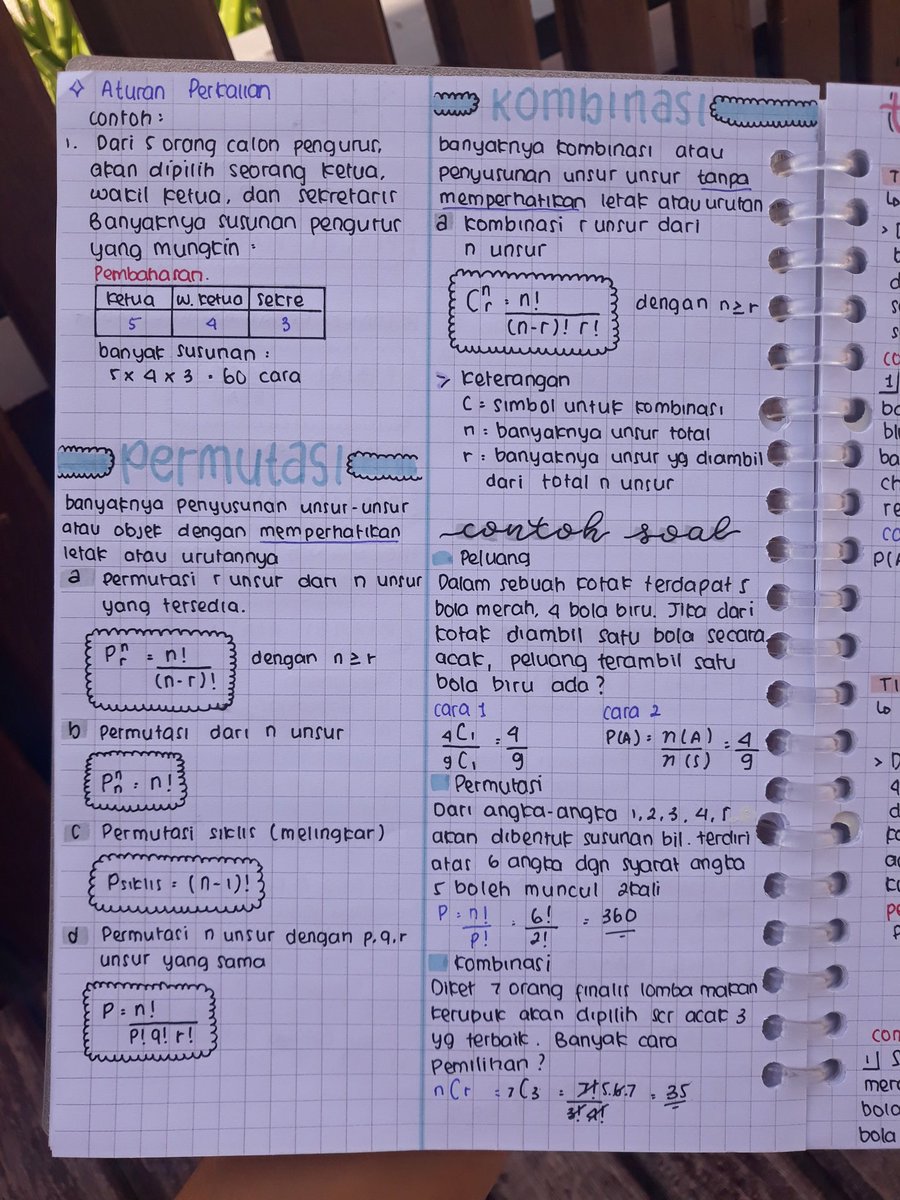 ✧ Aturan Perkalian
contoh :
1. Dari 5 orang calon pengurus,
akan dipilih seorang ketua,
wakil ketua, dan sekretaris
Banyaknya susunan pengurus
yang mungkin :
Pembahasan.
ketua w. ketua sekre
5 4 3
banyak susunan :
5 x 4 x 3 = 60 cara
Permutasi
banyaknya penyusunan unsur-unsur
atau objek dengan memperhatikan
letak atau urutannya
a Permutasi r unsur dari n unsur
yang tersedia.
P n r = n! / (n-r)! dengan n ≥ r
b Permutasi dari n unsur
P n n = n!
c Permutasi siklis (melingkar)
Psiklis = (n-1)!
d Permutasi n unsur dengan p,q,r
unsur yang sama
P = n! / p! q! r!
Kombinasi
banyaknya kombinasi atau
penyusunan unsur unsur tanpa
memperhatikan letak atau urutan
a kombinasi r unsur dari
n unsur
C n r = n! / (n-r)! r! dengan n ≥ r
> keterangan
C = simbol untuk kombinasi
n = banyaknya unsur total
r = banyaknya unsur yg diambil
dari total n unsur
contoh soal
Peluang
Dalam sebuah kotak terdapat 5
bola merah, 4 bola biru. Jika dari
kotak diambil satu bola secara
acak, peluang terambil satu
bola biru ada?
cara 1 cara 2
4C1 / 9C1 = 4/9 P(A) = n(A) / n(S) = 4/9
Permutasi
Dari angka-angka 1,2,3,4,5
akan dibentuk susunan bil. terdiri
atas 6 angka dgn syarat angka
5 boleh muncul 2kali
P = n! / p! = 6! / 2! = 360
Kombinasi
Diket 7 orang finalis lomba makan
kerupuk akan dipilih scr acak 3
yg terbaik. Banyak cara
Pemilihan?
nCr = 7C3 = 4! 5.6.7 / 3! 4! = 35